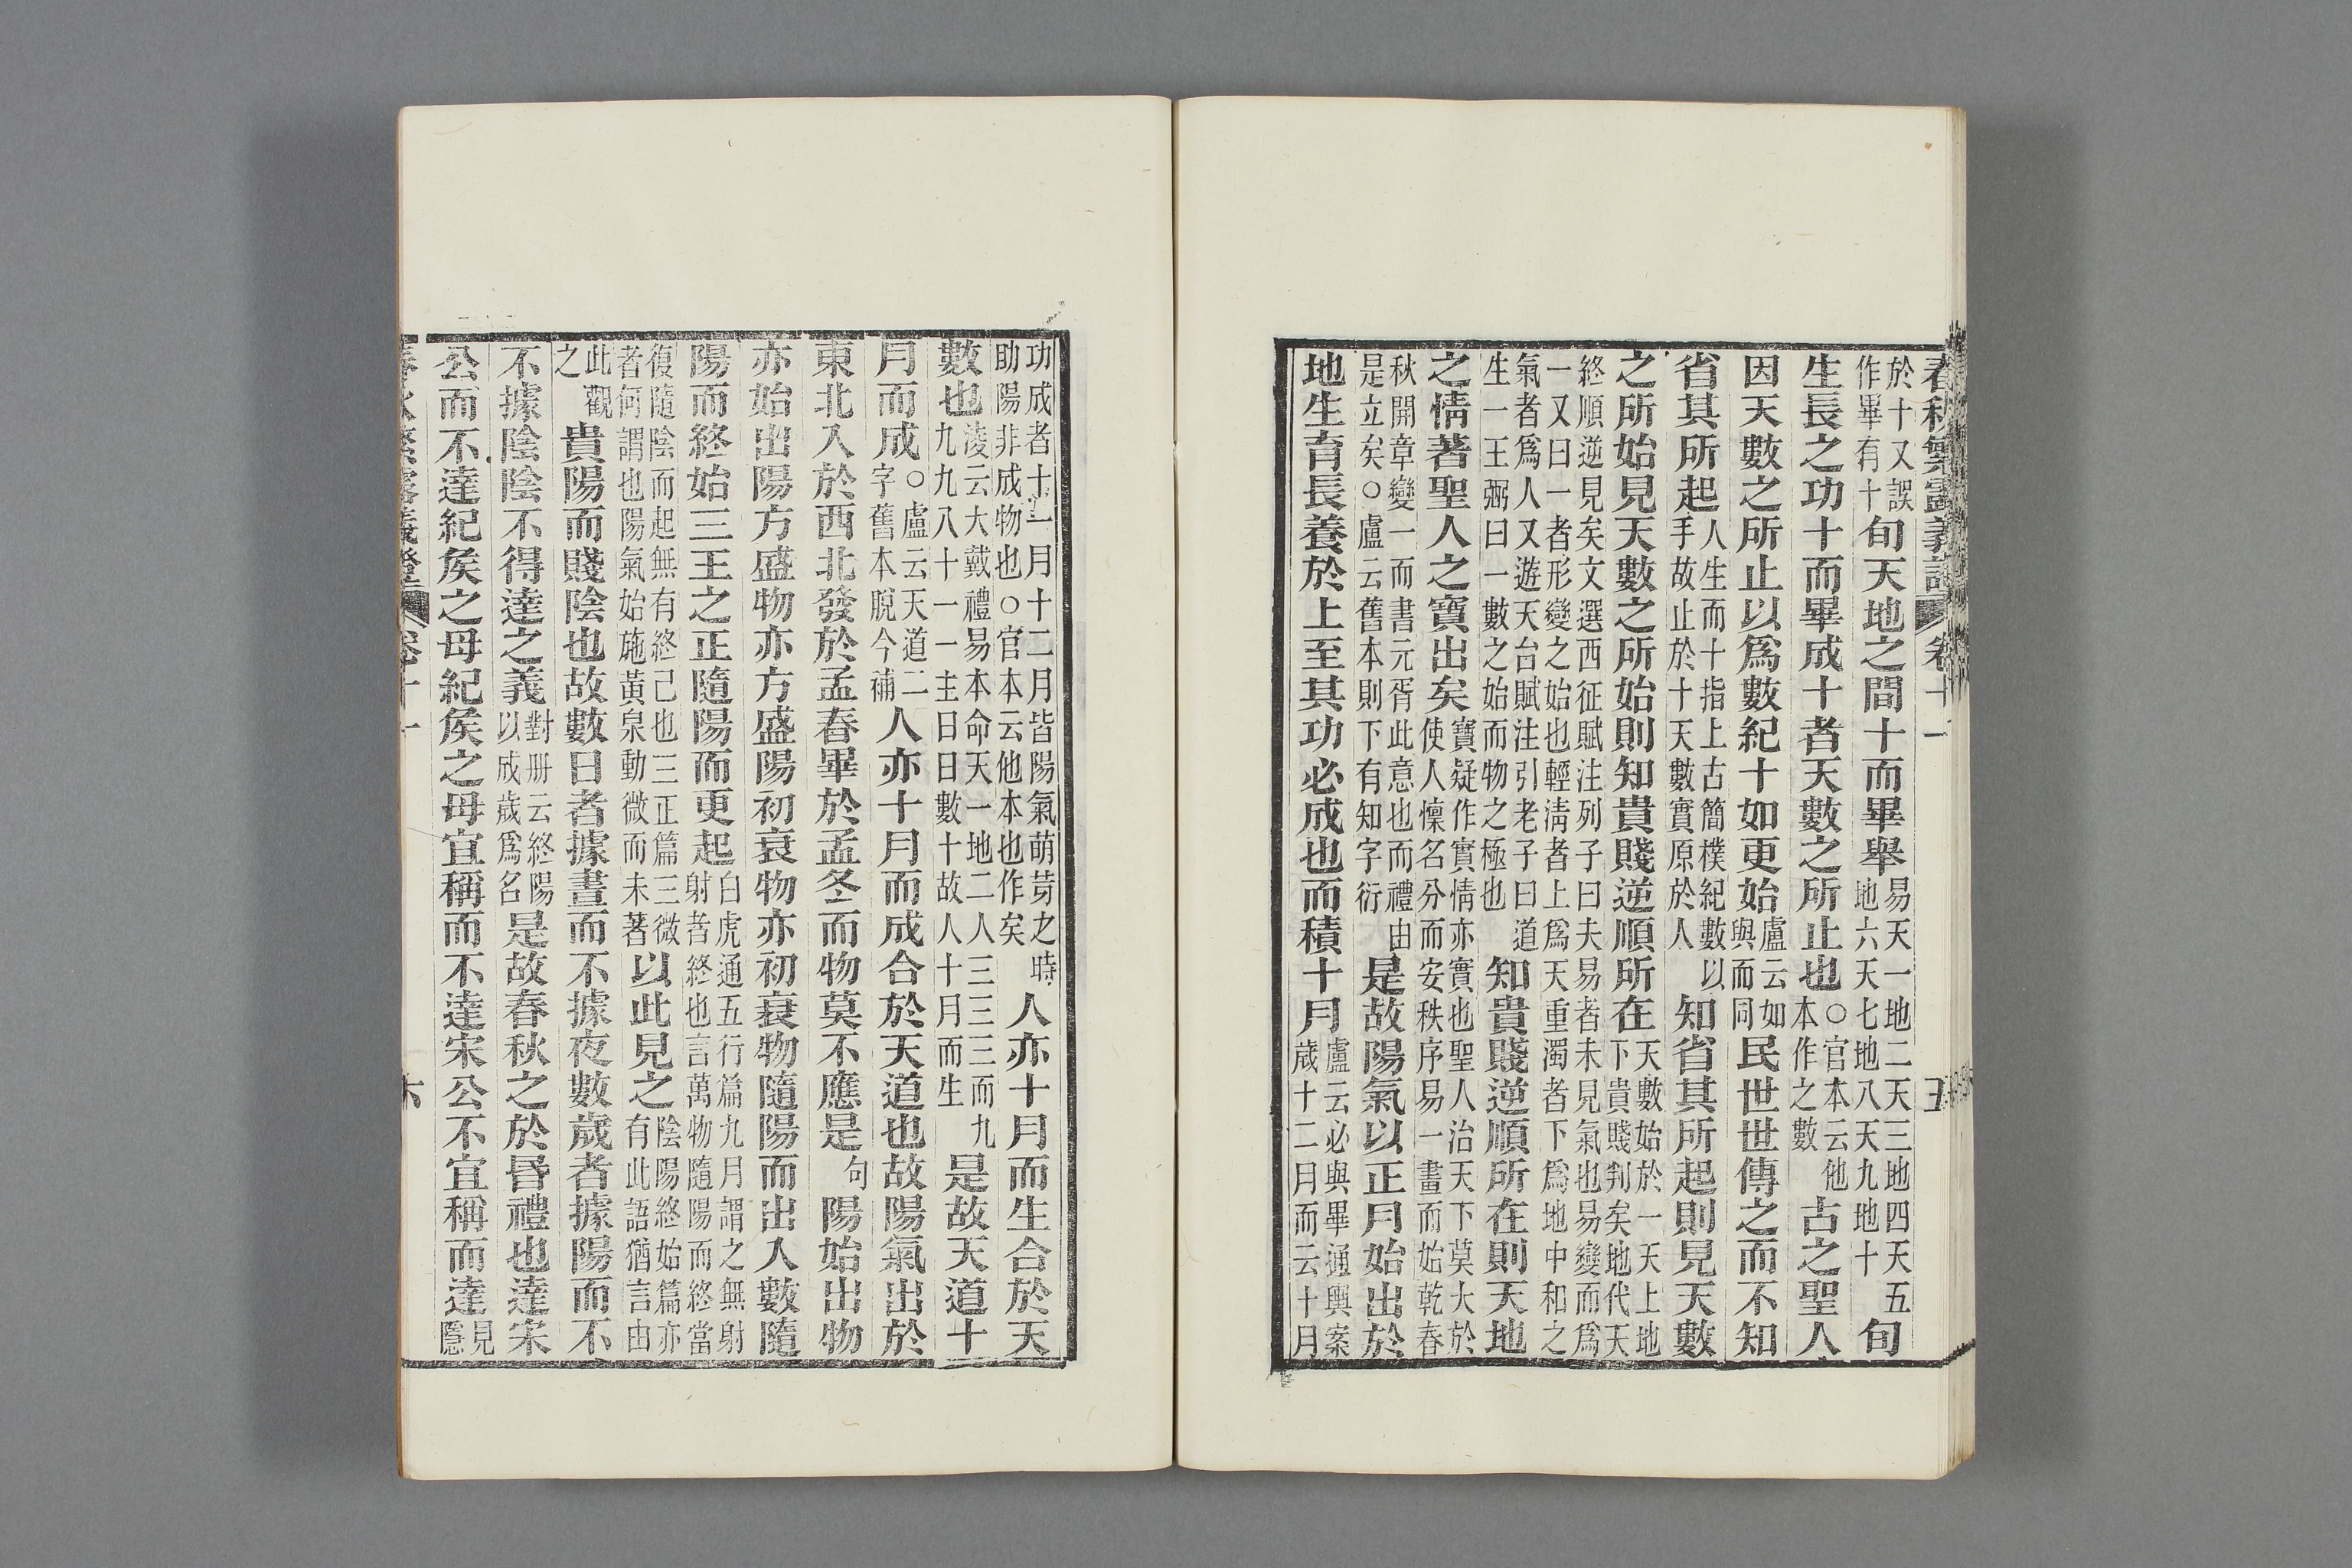 春秋繁露義證 卷十一 五
於十又誤作畢有十旬天地之間十而畢舉易天一地二天三地四天五地六天七地八天九地十旬
生長之功十而畢成十者天數之所止也○官本云他本作之數古之聖人
因天數之所止以爲數紀十如更始盧云如與而同民世世傳之而不知
省其所起人生而十指上古簡樸紀數以手故止於十天數實原於人知省其所起則見天數
之所始見天數之所始則知貴賤逆順所在天數始於一天上地下貴賤判矣地代天
終順逆見矣文選西征賦注列子曰夫易者未見氣也易變而爲一又曰一者形變之始也輕淸者上爲天重濁者下爲地中和之
氣者爲人又遊天台賦注引老子曰道生一王弼曰一數之始而物之極也知貴賤逆順所在則天地
之情著聖人之寶出矣寶疑作實情亦實也聖人治天下莫大於使人懍名分而安秩序易一畫而始乾春
秋開章變一而書元胥此意也而禮由是立矣○盧云舊本則下有知字衍是故陽氣以正月始出於
地生育長養於上至其功必成也而積十月盧云必與畢通興案歲十二月而云十月
功成者十一月十二月皆陽氣萌芽之時助陽非成物也○官本云他本也作矣人亦十月而生合於天
數也淩云大戴禮易本命天一地二人三三三而九九九八十一一主日日數十故人十月而生是故天道十
月而成○盧云天道二字舊本脫今補人亦十月而成合於天道也故陽氣出於
東北入於西北發於孟春畢於孟冬而物莫不應是句陽始出物
亦始出陽方盛物亦方盛陽初衰物亦初衰物隨陽而出入數隨
陽而終始三王之正隨陽而更起白虎通五行篇九月謂之無射射者終也言萬物隨陽而終當
復隨陰而起無有終已也三正篇三微者何謂也陽氣始施黃泉動微而未著以此見之陰陽終始篇亦有此語猶言由
此觀之貴陽而賤陰也故數日者據晝而不據夜數歲者據陽而不
不據陰陰不得達之義對册云終陽以成歲爲名是故春秋之於昏禮也達宋
公而不達紀侯之母紀侯之母宜稱而不達宋公不宜稱而達見隱
春秋繁露義證 卷十一 六